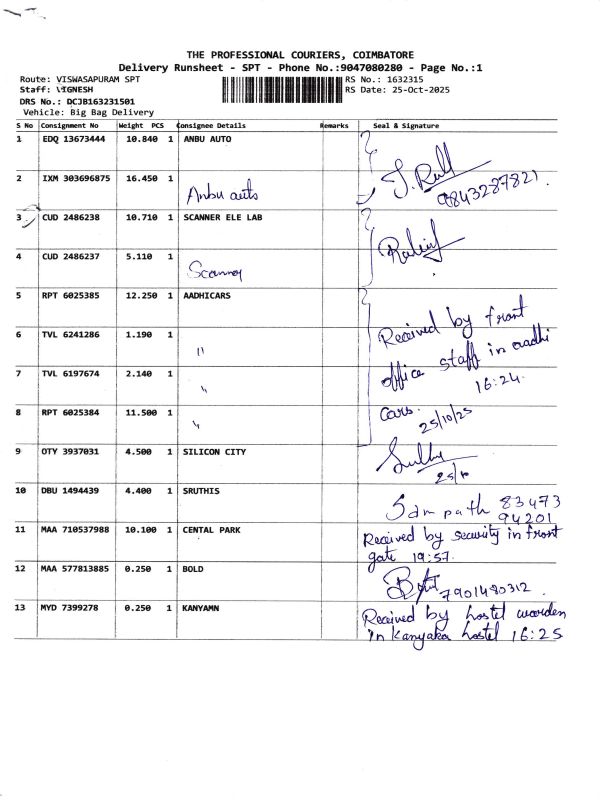 THE PROFESSIONAL COURIERS, COIMBATORE
Delivery Runsheet - SPT - Phone No.:9047080280 - Page No.:1
Route: VISWASAPURAM SPT
RS No.: 1632315
Staff: VIGNESH
RS Date: 25-Oct-2025
DRS No.: DCJB163231501
Vehicle: Big Bag Delivery
S No Consignment No Weight PCS Consignee Details Remarks Seal & Signature
1 EDQ 13673444 10.840 1 ANBU AUTO
2 IXM 303696875 16.450 1 Anbu auto
9843287821
3 CUD 2486238 10.710 1 SCANNER ELE LAB
4 CUD 2486237 5.110 1
5 RPT 6025385 12.250 1 AADHICARS
6 TVL 6241286 1.190 1 "
Received by front
7 TVL 6197674 2.140 1 "
office staff in aadhi
16:24
8 RPT 6025384 11.500 1 "
cars. 25/10/25
9 OTY 3937031 4.500 1 SILICON CITY
25/10
10 DBU 1494439 4.400 1 SRUTHIS
Sampath 83473
94201
11 MAA 710537988 10.100 1 CENTAL PARK
Received by security in front
gate 19:57
12 MAA 577813885 0.250 1 BOLD
7901480312
13 MYD 7399278 0.250 1 KANYAMN
Received by hostel warden
in Kanyaka hostel 16:25